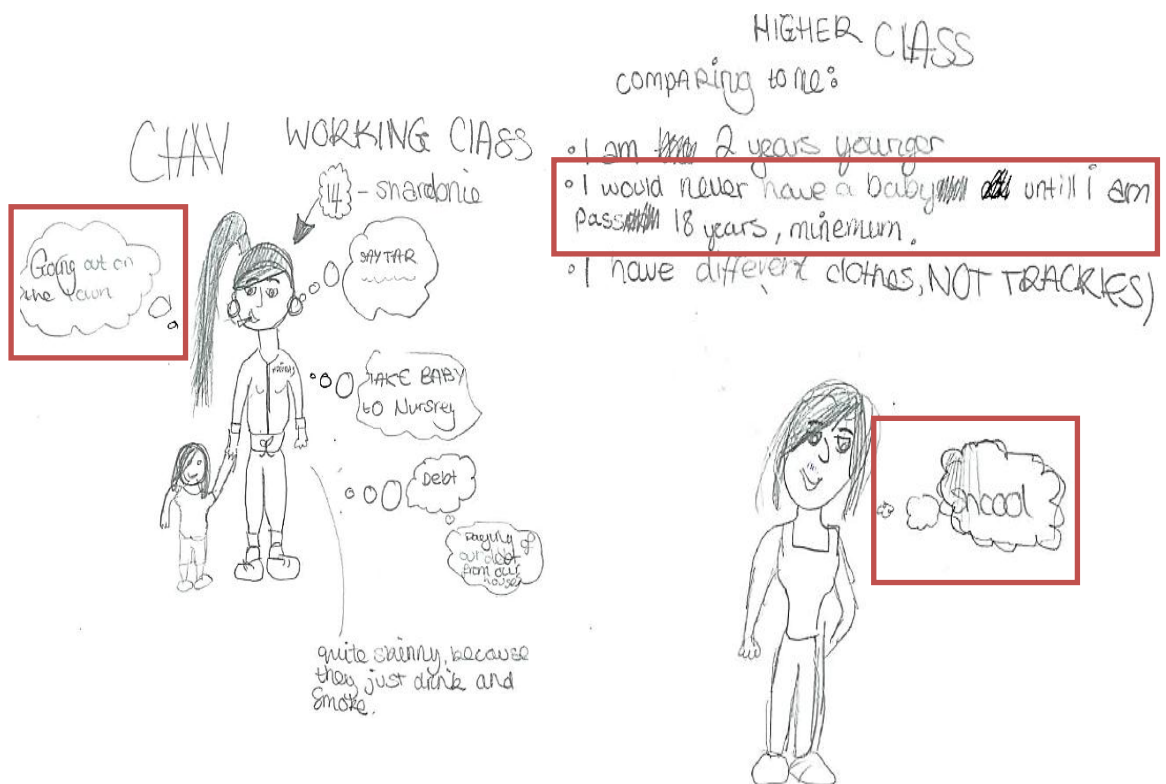 CHAV
WORKING CLASS
14 - snardonie
Going out on
the town
SAY TAR
TAKE BABY
to Nursrey
Debt
Paying of
our debt
from our
house
quite skinny, because
they just drink and
smoke.
HIGHER CLASS
comparing to me:
• I am 2 years younger
• I would never have a baby untill i am
pass 18 years, minemum.
• I have different clothes, NOT TRACKIES)